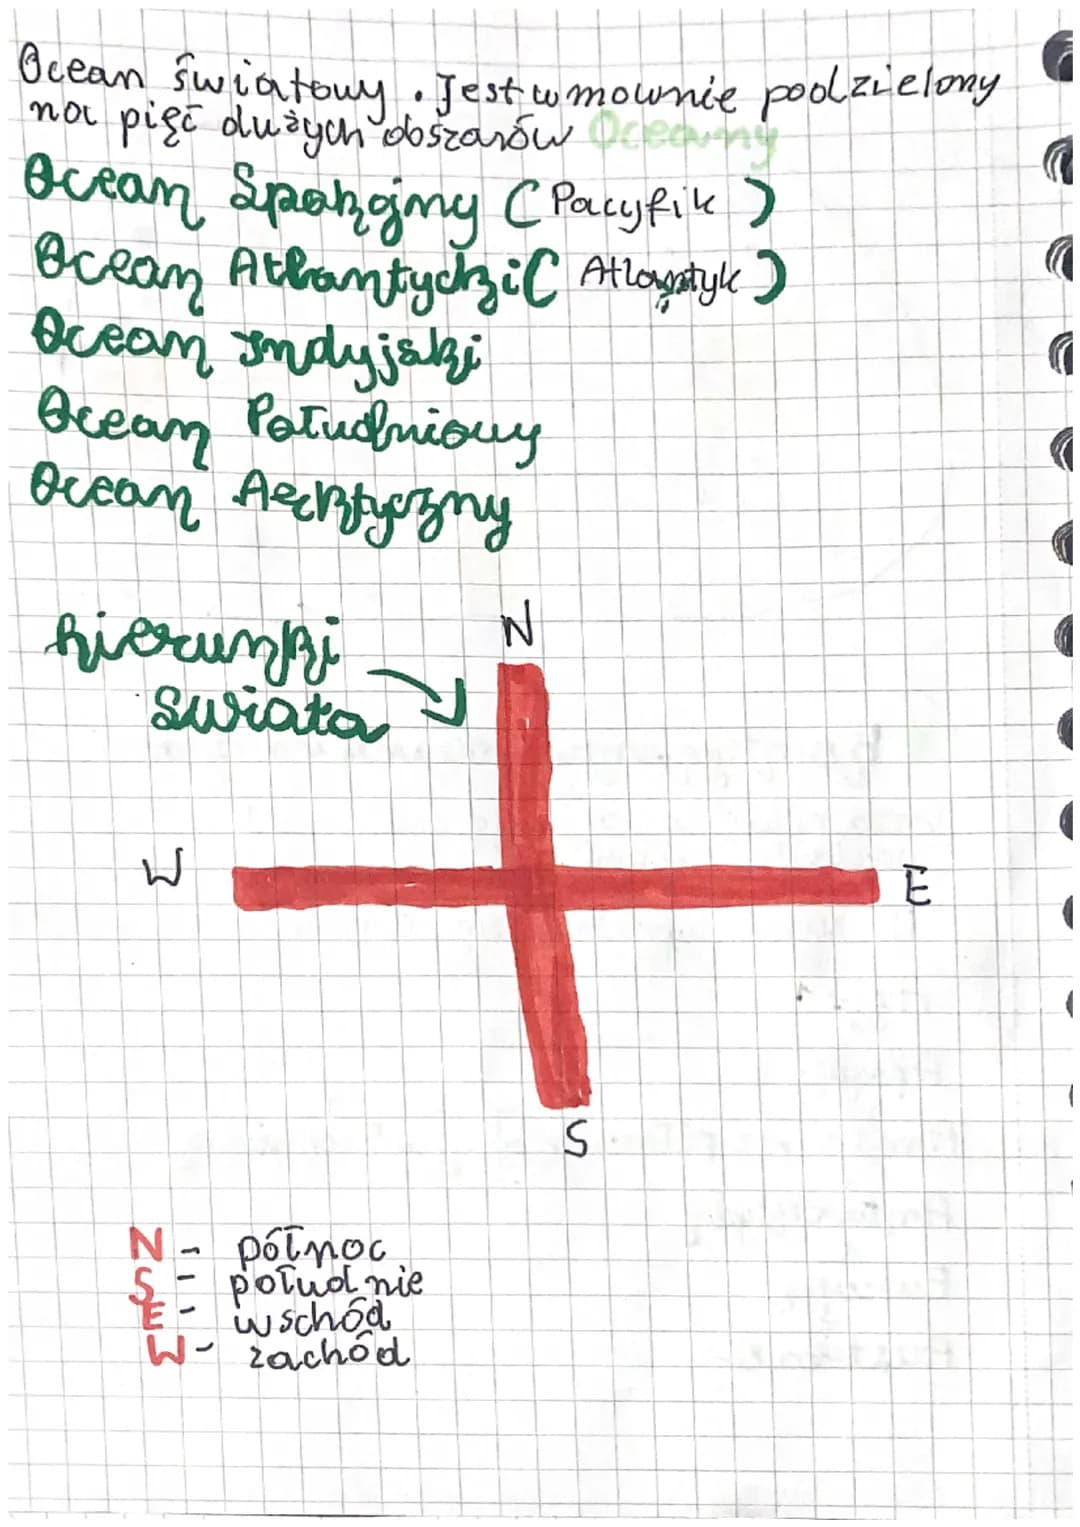 Ocean światowy. Jest umownie podzielony
na pięć dużych obszarów Oceany
Ocean Spokojny (Pacyfik)
Ocean Atlantycki (Atlantyk)
Ocean Indyjski
Ocean Południowy
Ocean Arktyczny
kierunki
świata
N
W
E
S
N - północ
S - południe
E - wschód
W - zachód